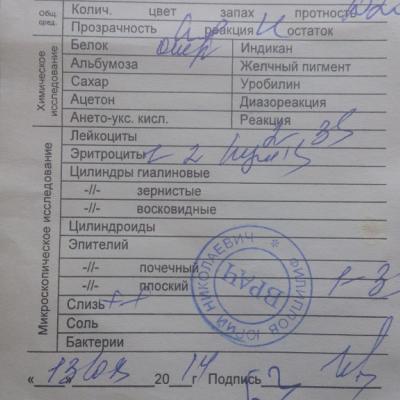 Общ. свед.
Колич. цвет запах протность
Прозрачность реакция остаток
Химическое исследование
Белок отр Индикан
Альбумоза Желчный пигмент
Сахар Уробилин
Ацетон Диазореакция
Ането-укс. кисл. Реакция
Микроскопическое исследование
Лейкоциты 2-3
Эритроциты
Цилиндры гиалиновые
-//- зернистые
-//- восковидные
Цилиндроиды
Эпителий
-//- почечный
-//- плоский 1-3
Слизь ++
Соль
Бактерии
ФИЛИППОВ ЮРИЙ НИКОЛАЕВИЧ
ВРАЧ
« 13 » 20 14 г Подпись